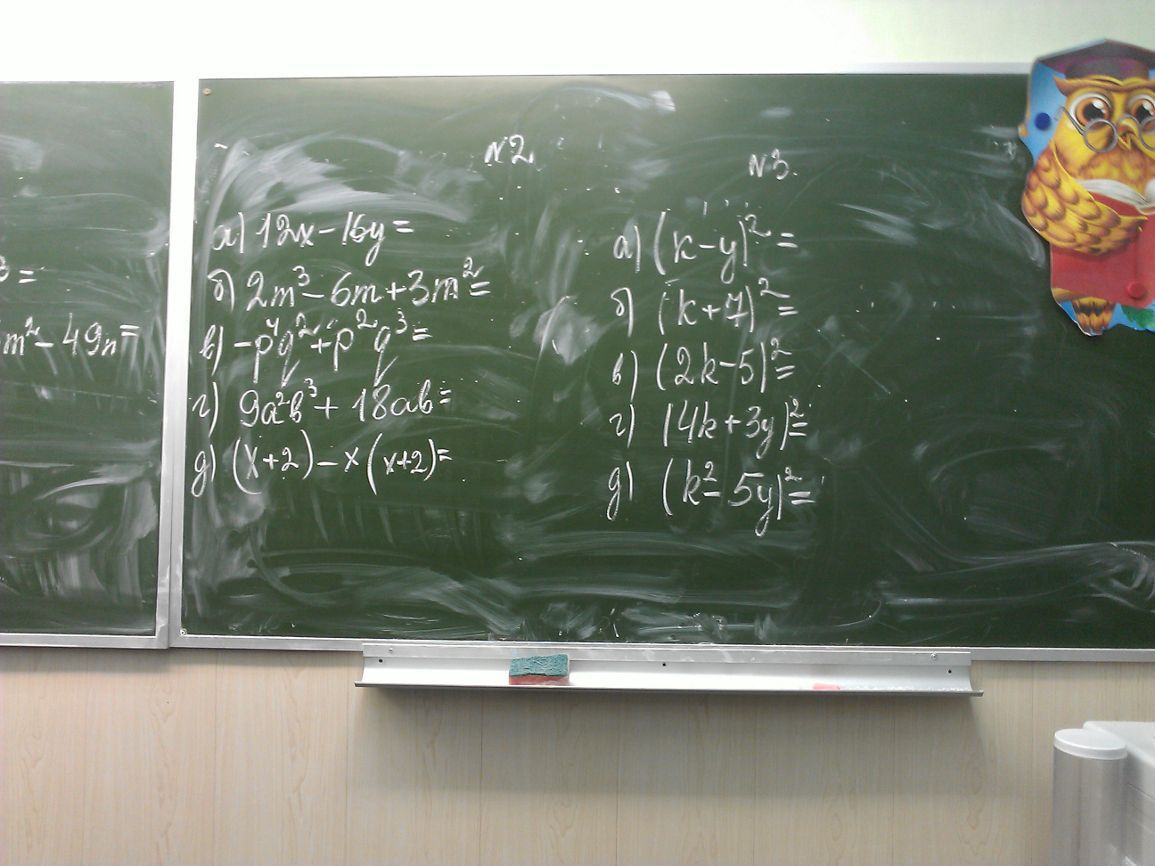 ³=
m²-49n=
N2.
а) 12x-16y=
б) 2m³-6m+3m²=
в) -p⁴q²+p²q³=
г) 9a²b³+18ab=
д) (x+2)-x(x+2)=
N3.
а) (k-y)²=
б) (k+7)²=
в) (2k-5)²=
г) (4k+3y)²=
д) (k²-5y)²=